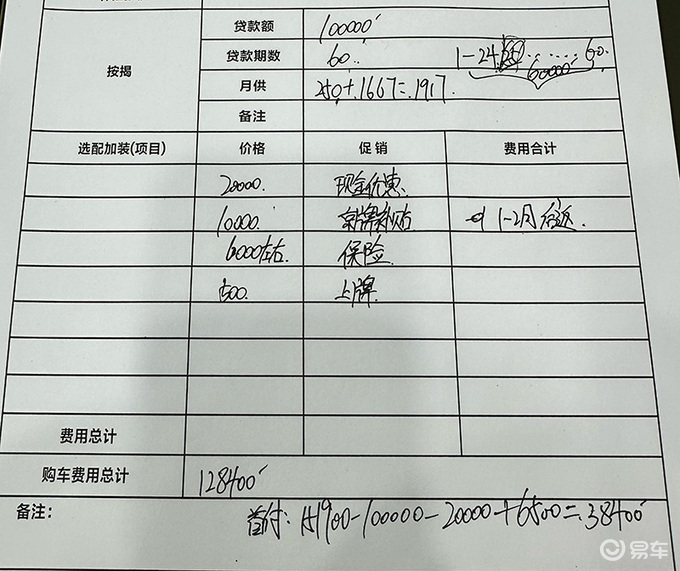 按揭
贷款额 100000
贷款期数 60
1-24 60
60000
月供 250+1667=1917
备注
选配加装(项目) 价格 促销 费用合计
20000 现金优惠
10000 京牌补贴 1-2月后返
6000左右 保险
500 上牌
费用总计
购车费用总计 128400
备注: 首付: 151900-100000-20000+6500=38400
易车